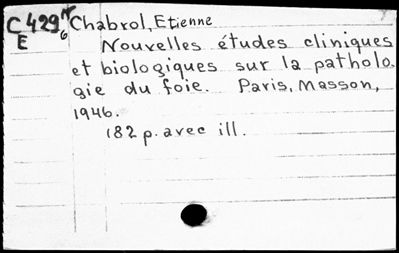 C429 Chabrol, Etienne
E Nouvelles études cliniques
et biologiques sur la patholo
gie du foie. Paris, Masson,
1946.
182 p. avec ill.